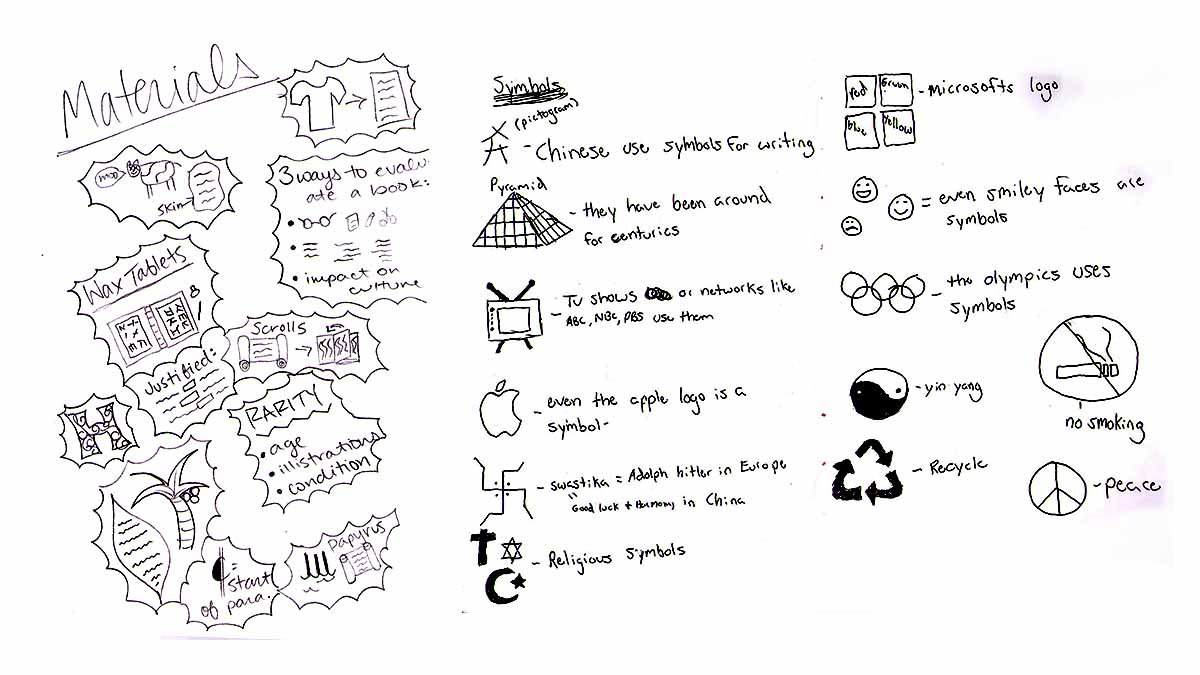 Materials
moo
skin
3 ways to evalu-
ate a book:
• impact on
culture
Wax Tablets
Scrolls
Justified:
RARITY
• age
• illistrations
• condition
Papyrus
= start
of para.
Symbols
(pictogram)
- Chinese use symbols for writing
Pyramid
- they have been around
for centurics
- TV shows or networks like
ABC, NBC, PBS use them
- even the apple logo is a
symbol-
- swastika = Adolph hitler in Europe
" Good luck + Harmony in China
- Religious symbols
red Green
blue Yellow
- microsofts logo
= even smiley faces are
symbols
- the olympics uses
symbols
- yin yang
no smoking
- Recycle
- peace